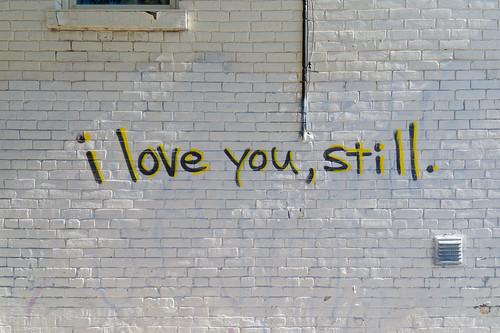 i love you, still.